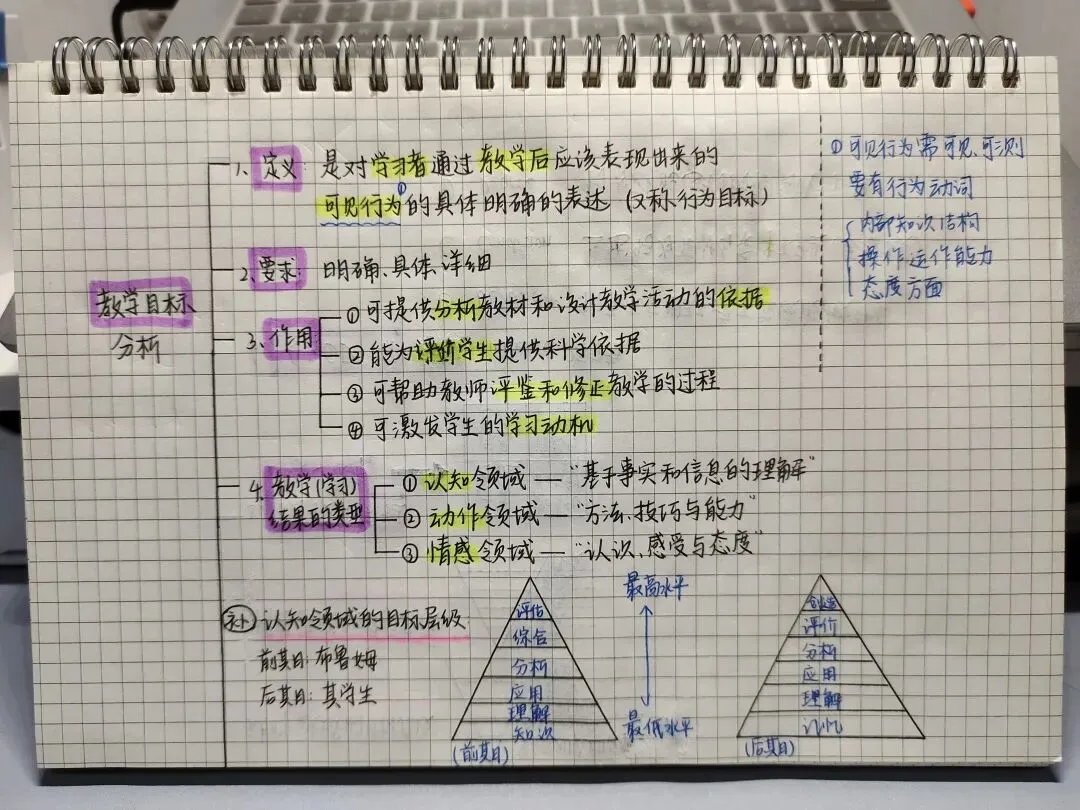 教学目标
分析
1、定义：是对学习者通过教学后应该表现出来的
可见行为①的具体明确的表达（又称行为目标）
2、要求：明确、具体、详细
3、作用
①可提供分析教材和设计教学活动的依据
②能为评价学生提供科学依据
③可帮助教师评鉴和修正教学的过程
④可激发学生的学习动机
4、教学(学习)
结果的类型
①认知领域—“基于事实和信息的理解”
②动作领域—“方法、技巧与能力”
③情感领域—“认识、感受与态度”
①可见行为需可见、可测
要有行为动词
内部知识结构
操作运作能力
态度方面
补 认知领域的目标层级
前期：布鲁姆
后期：其学生
评估
综合
分析
应用
理解
知识
(前期)
最高水平
最低水平
创造
评价
分析
应用
理解
记忆
(后期)